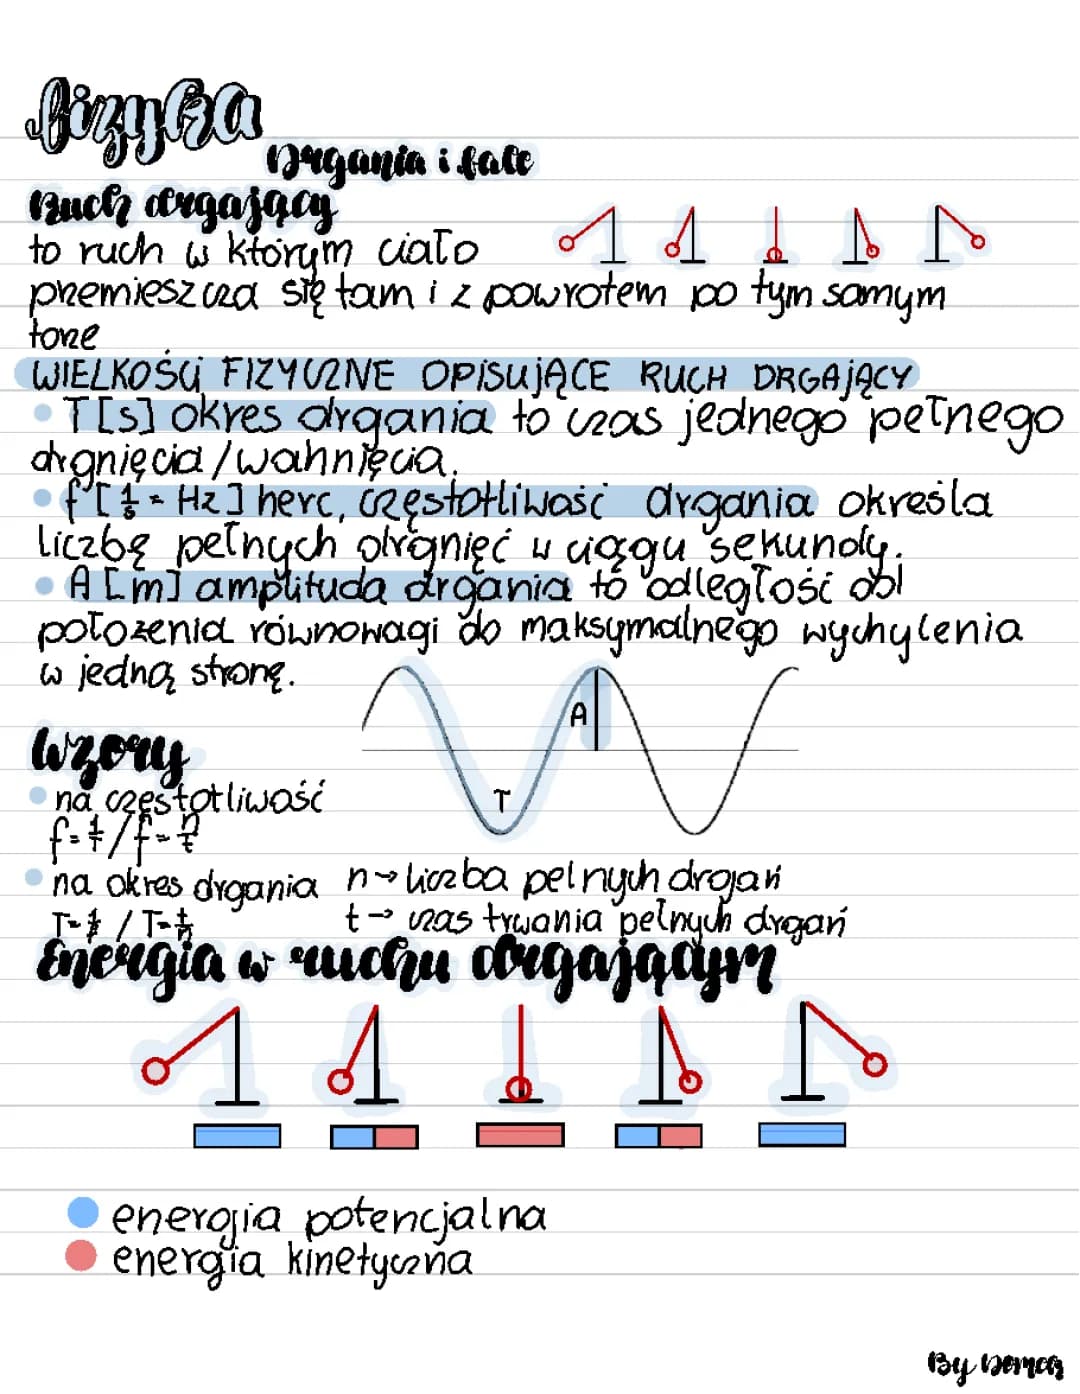 fizyka
Drgania i fale
Ruch drgający
to ruch w którym ciało
przemieszcza się tam i z powrotem po tym samym
torze
WIELKOŚCI FIZYCZNE OPISUJĄCE RUCH DRGAJĄCY
• T[s] okres drgania to czas jednego pełnego
drgnięcia/wahnięcia.
• f[1/s = Hz] herc, częstotliwość drgania określa
liczbę pełnych drgnięć w ciągu sekundy.
• A [m] amplituda drgania to odległość od
położenia równowagi do maksymalnego wychylenia
w jedną stronę.
A
T
Wzory
• na częstotliwość
f=1/T / f=n/t
• na okres drgania n→liczba pelnych drgań
T=1/f / T=t/n t→ czas trwania pełnych drgań
Energia w ruchu drgającym
energia potencjalna
energia kinetyczna
By Domcą